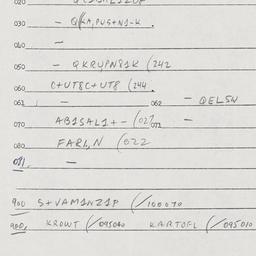 020
030 - Q(KA,PUS+NI-K .
040 -
050 - QKRYPN8IK (242
060 C+UT8C+UT8 (244
061 - 062 - QELSN
070 AB1SAL1+- (027 071 -
080 FARL,N (022
081 -
900 S+VAM1NZ1P (/100070
900, KROWT (/095040 KARTOFL (/095010